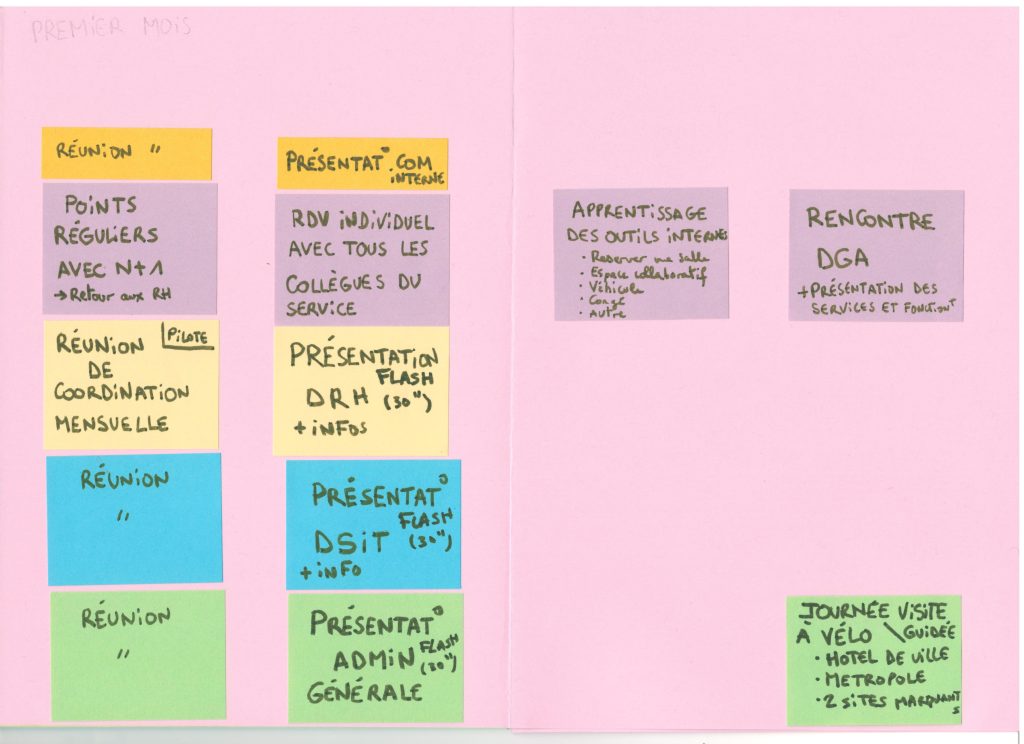 PREMIER MOIS
RÉUNION "
PRÉSENTAT° COM
INTERNE
POINTS
RÉGULIERS
AVEC N+1
→ Retour aux RH
RDV INDIVIDUEL
AVEC TOUS LES
COLLÈGUES DU
SERVICE
APPRENTISSAGE
DES OUTILS INTERNES
• Reserver une salle
• Espace collaboratif
• Véhicule
• Congé
• Autre
RENCONTRE
DGA
+ PRÉSENTATION DES
SERVICES ET FONCTIONT
RÉUNION PILOTE
DE
COORDINATION
MENSUELLE
PRÉSENTATION
FLASH
DRH (30")
+ INFOS
RÉUNION
"
PRÉSENTAT°
FLASH
DSIT (30")
+ INFO
RÉUNION
"
PRÉSENTAT°
FLASH
ADMIN (30")
GÉNÉRALE
JOURNÉE VISITE
À VÉLO \ GUIDÉE
• HOTEL DE VILLE
• METROPOLE
• 2 SITES MARQUANTS